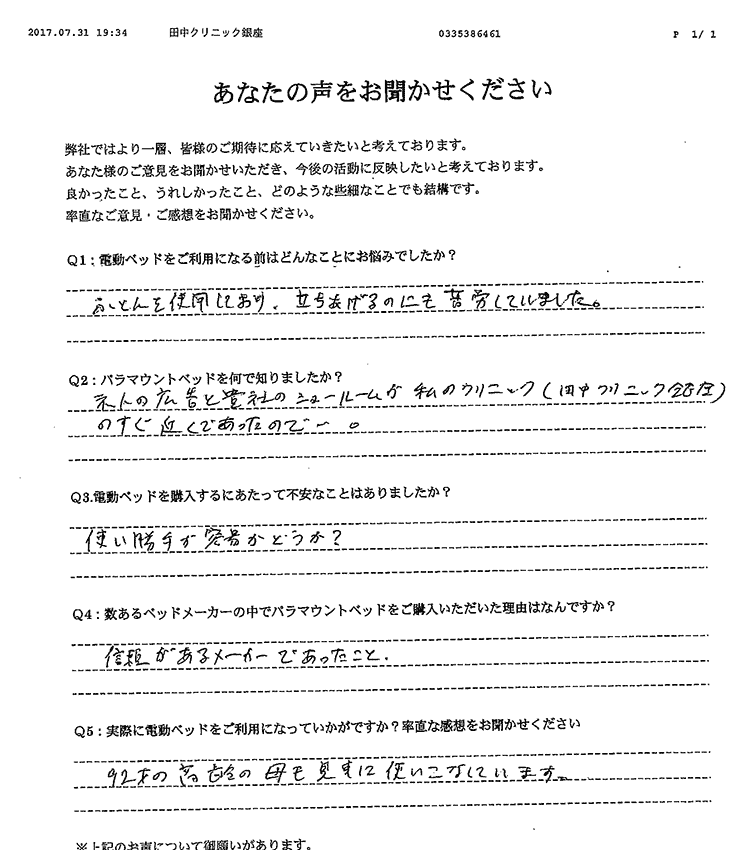 2017.07.31 19:34 田中クリニック銀座 0335386461 P 1/ 1
あなたの声をお聞かせください
弊社ではより一層、皆様のご期待に応えていきたいと考えております。
あなた様のご意見をお聞かせいただき、今後の活動に反映したいと考えております。
良かったこと、うれしかったこと、どのような些細なことでも結構です。
率直なご意見・ご感想をお聞かせください。
Q1:電動ベッドをご利用になる前はどんなことにお悩みでしたか?
ふとんを使用しており、立ちあげるのにも苦労していました。
Q2:パラマウントベッドを何で知りましたか?
の広告と貴社のショールームが私のクリニック(田中クリニック銀座)
のすぐ近くであったので―。
Q3.電動ベッドを購入するにあたって不安なことはありましたか?
使い勝手が容易かどうか?
Q4:数あるベッドメーカーの中でパラマウントベッドをご購入いただいた理由はなんですか?
信頼があるメーカーであったこと.
Q5:実際に電動ベッドをご利用になっていかがですか?率直な感想をお聞かせください
92才の高齢の母も見事に使いこなしています。
※上記のお声について御願いがあります。